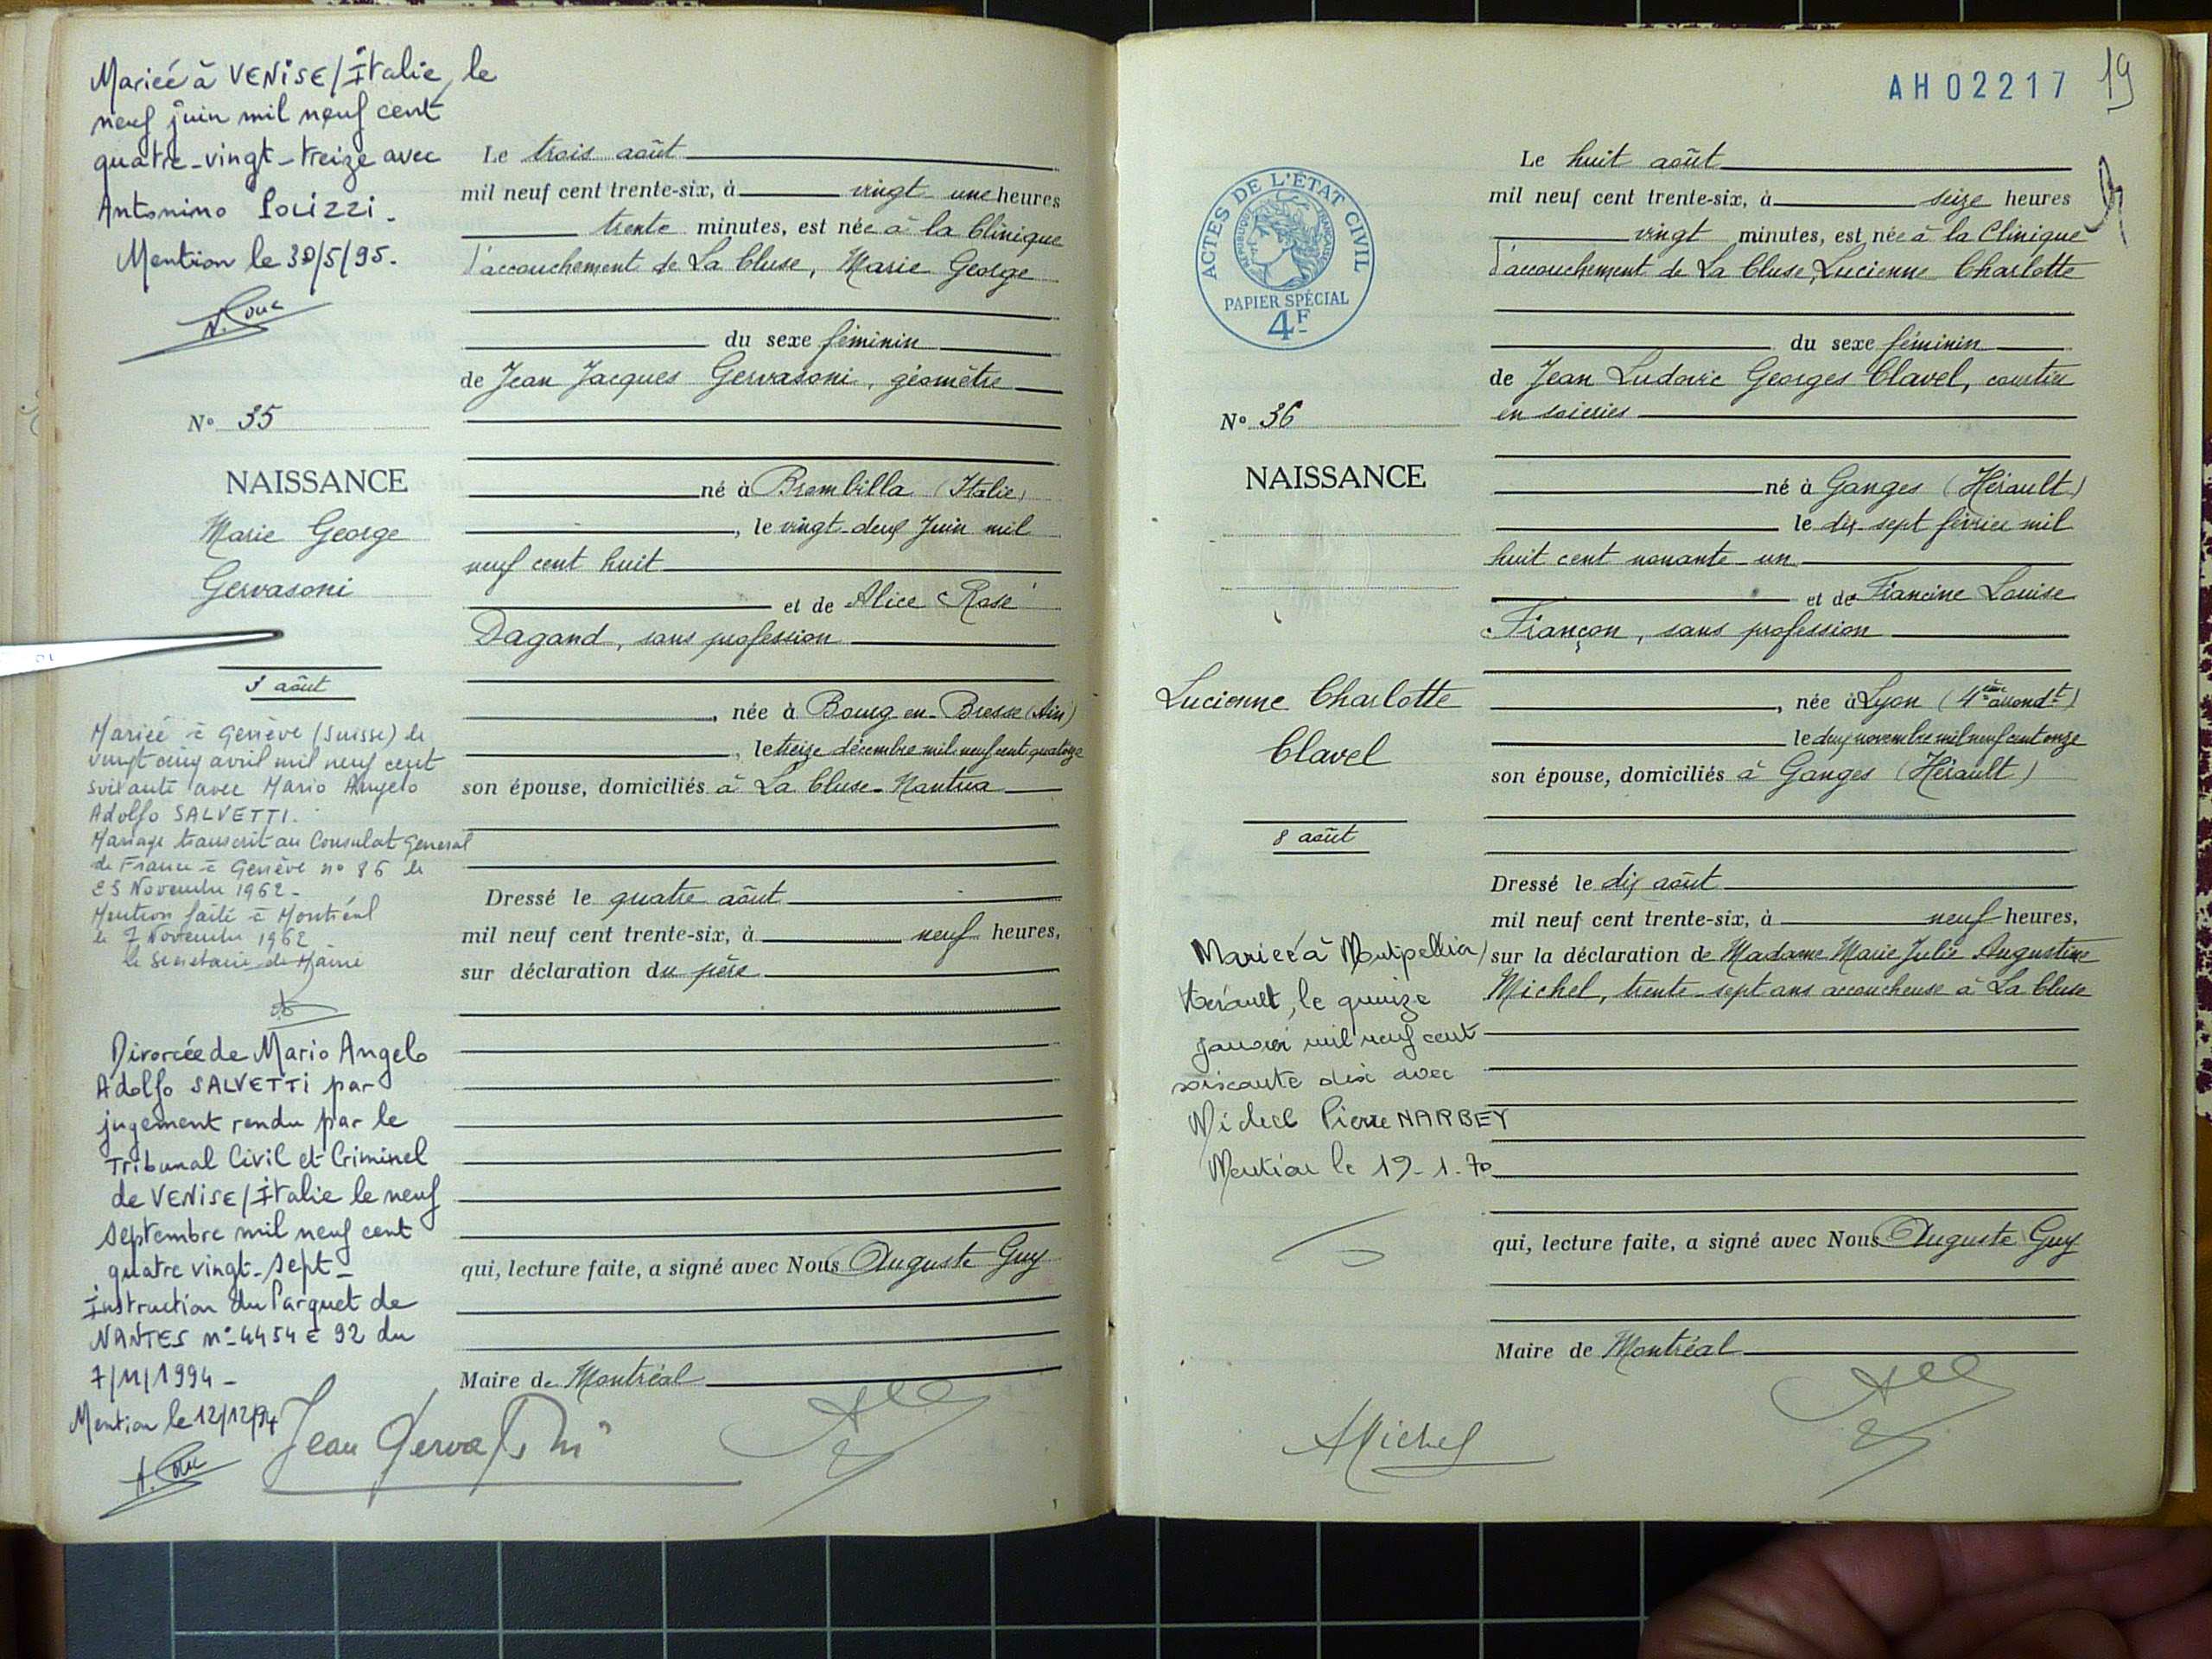 Mariée à VENiSE/Italie, le
neuf juin mil neuf cent
quatre-vingt-treize avec
Antonino Polizzi.
Mention le 30/5/95.
N° 35
NAISSANCE
Marie George
Gervasoni
3 août
Mariée à Genève (Suisse) le
vingt cinq avril mil neuf cent
soixante avec Mario Angelo
Adolfo SALVETTI.
Mariage transcrit au Consulat General
de France à Genève n° 86 le
Novembre 1962-
Mention faite à Montréal
le 7 Novembre 1962
le Secrétaire de Mairie
Divorcée de Mario Angelo
Adolfo SALVETTi par
jugement rendu par le
Tribunal Civil et Criminel
de VENiSE/Italie le neuf
Septembre mil neuf cent
quatre vingt-sept-
instruction du Parquet de
NANTES n°-4454 E 92 du
7/11/1994-
Mention le 12/12/94
Le trois août
mil neuf cent trente-six, à vingt une heures
trente minutes, est née à la Clinique
d'accouchement de La Cluse, Marie George
du sexe féminin
de Jean Jacques Gervasoni, géomètre
né à Brembilla (Italie)
, le vingt-deux Juin mil
neuf cent huit
et de Alice Rose
Dagand, sans profession
, née à Bourg-en-Bresse (Ain)
, le treize décembre mil neuf cent quatorze
son épouse, domiciliés à La Cluse-Nantua
Dressé le quatre août
mil neuf cent trente-six, à neuf heures,
sur déclaration du père
qui, lecture faite, a signé avec Nous Auguste Guy
Maire de Montréal
Jean Gervasoni
AH02217
19
ACTES DE L'ÉTAT CIVIL
RÉPUBLIQUE FRANÇAISE
PAPIER SPÉCIAL
4F
N° 36
NAISSANCE
Lucienne Charlotte
Clavel
8 août
Mariée à Montpellier/
Hérault, le quinze
janvier mil neuf cent
soixante dix avec
Michel Pierre NARBEY
Mention le 19-1-70
Le huit août
mil neuf cent trente-six, à seize heures
vingt minutes, est née à la Clinique
d'accouchement de La Cluse, Lucienne Charlotte
du sexe féminin
de Jean Ludovic Georges Clavel, courtier
en soieries
né à Ganges (Hérault)
le dix-sept février mil
huit cent nonante-un
et de Francine Louise
Françon, sans profession
, née à Lyon (4ème arrondt)
le deux novembre mil neuf cent onze
son épouse, domiciliés à Ganges (Hérault)
Dressé le dix août
mil neuf cent trente-six, à neuf heures,
sur la déclaration de Madame Marie Julie Augustine
Michel, trente-sept ans accoucheuse à La Cluse
qui, lecture faite, a signé avec Nous Auguste Guy
Maire de Montréal
AMichel